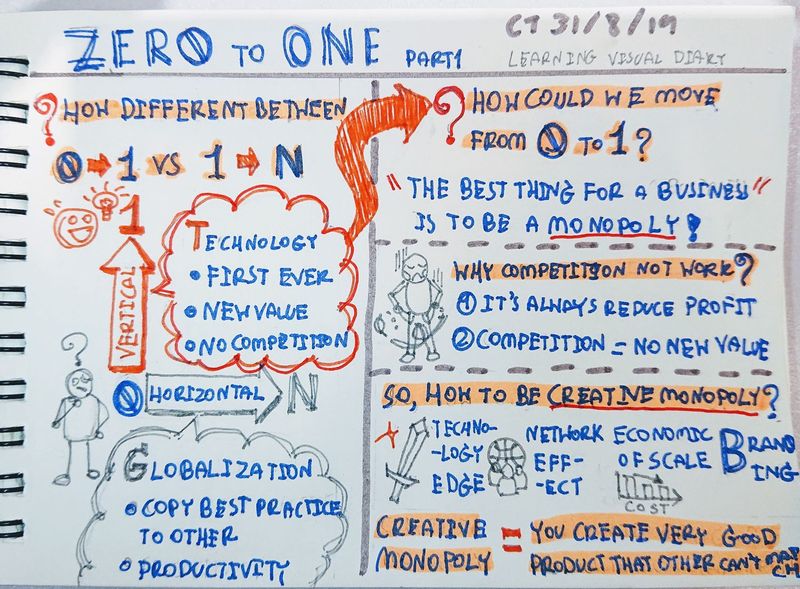 ZERO TO ONE PART1
CT 31/8/19
LEARNING VISUAL DIARY
? HOW DIFFERENT BETWEEN
0 → 1 VS 1 → N
1
VERTICAL
TECHNOLOGY
• FIRST EVER
• NEW VALUE
• NO COMPETITION
?
0 HORIZONTAL N
GLOBALIZATION
• COPY BEST PRACTICE
TO OTHER
• PRODUCTIVITY
? HOW COULD WE MOVE
FROM 0 TO 1?
"THE BEST THING FOR A BUSINESS"
IS TO BE A MONOPOLY!
WHY COMPETITION NOT WORK?
① IT'S ALWAYS REDUCE PROFIT
② COMPETITION = NO NEW VALUE
SO, HOW TO BE CREATIVE MONOPOLY?
TECHNO-
-LOGY
EDGE
NETWORK
EFF-
-ECT
ECONOMIC
OF SCALE
COST
BRAND
ING
CREATIVE
MONOPOLY
=
YOU CREATE VERY GOOD
PRODUCT THAT OTHER CAN'T MAT
CH